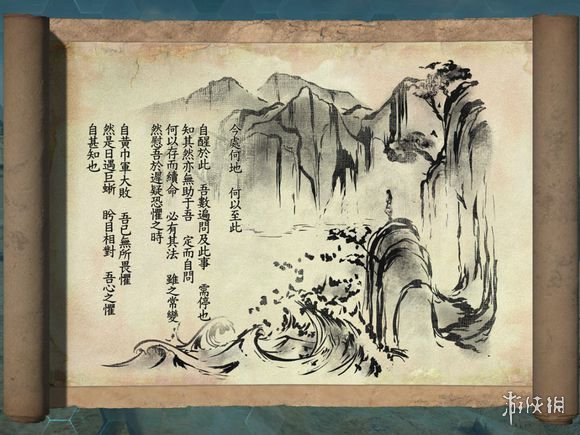 今處何地 何以至此
自醒於此 吾數遍問及此事 需停也
知其然亦無助于吾 定而自問
何以存而續命 必有其法 雖之常變
然慰吾於遲疑恐懼之時
自黃巾軍大敗 吾已無所畏懼
然是日遇巨蜥 盻目相對 吾心之懼
自甚知也
游侠網